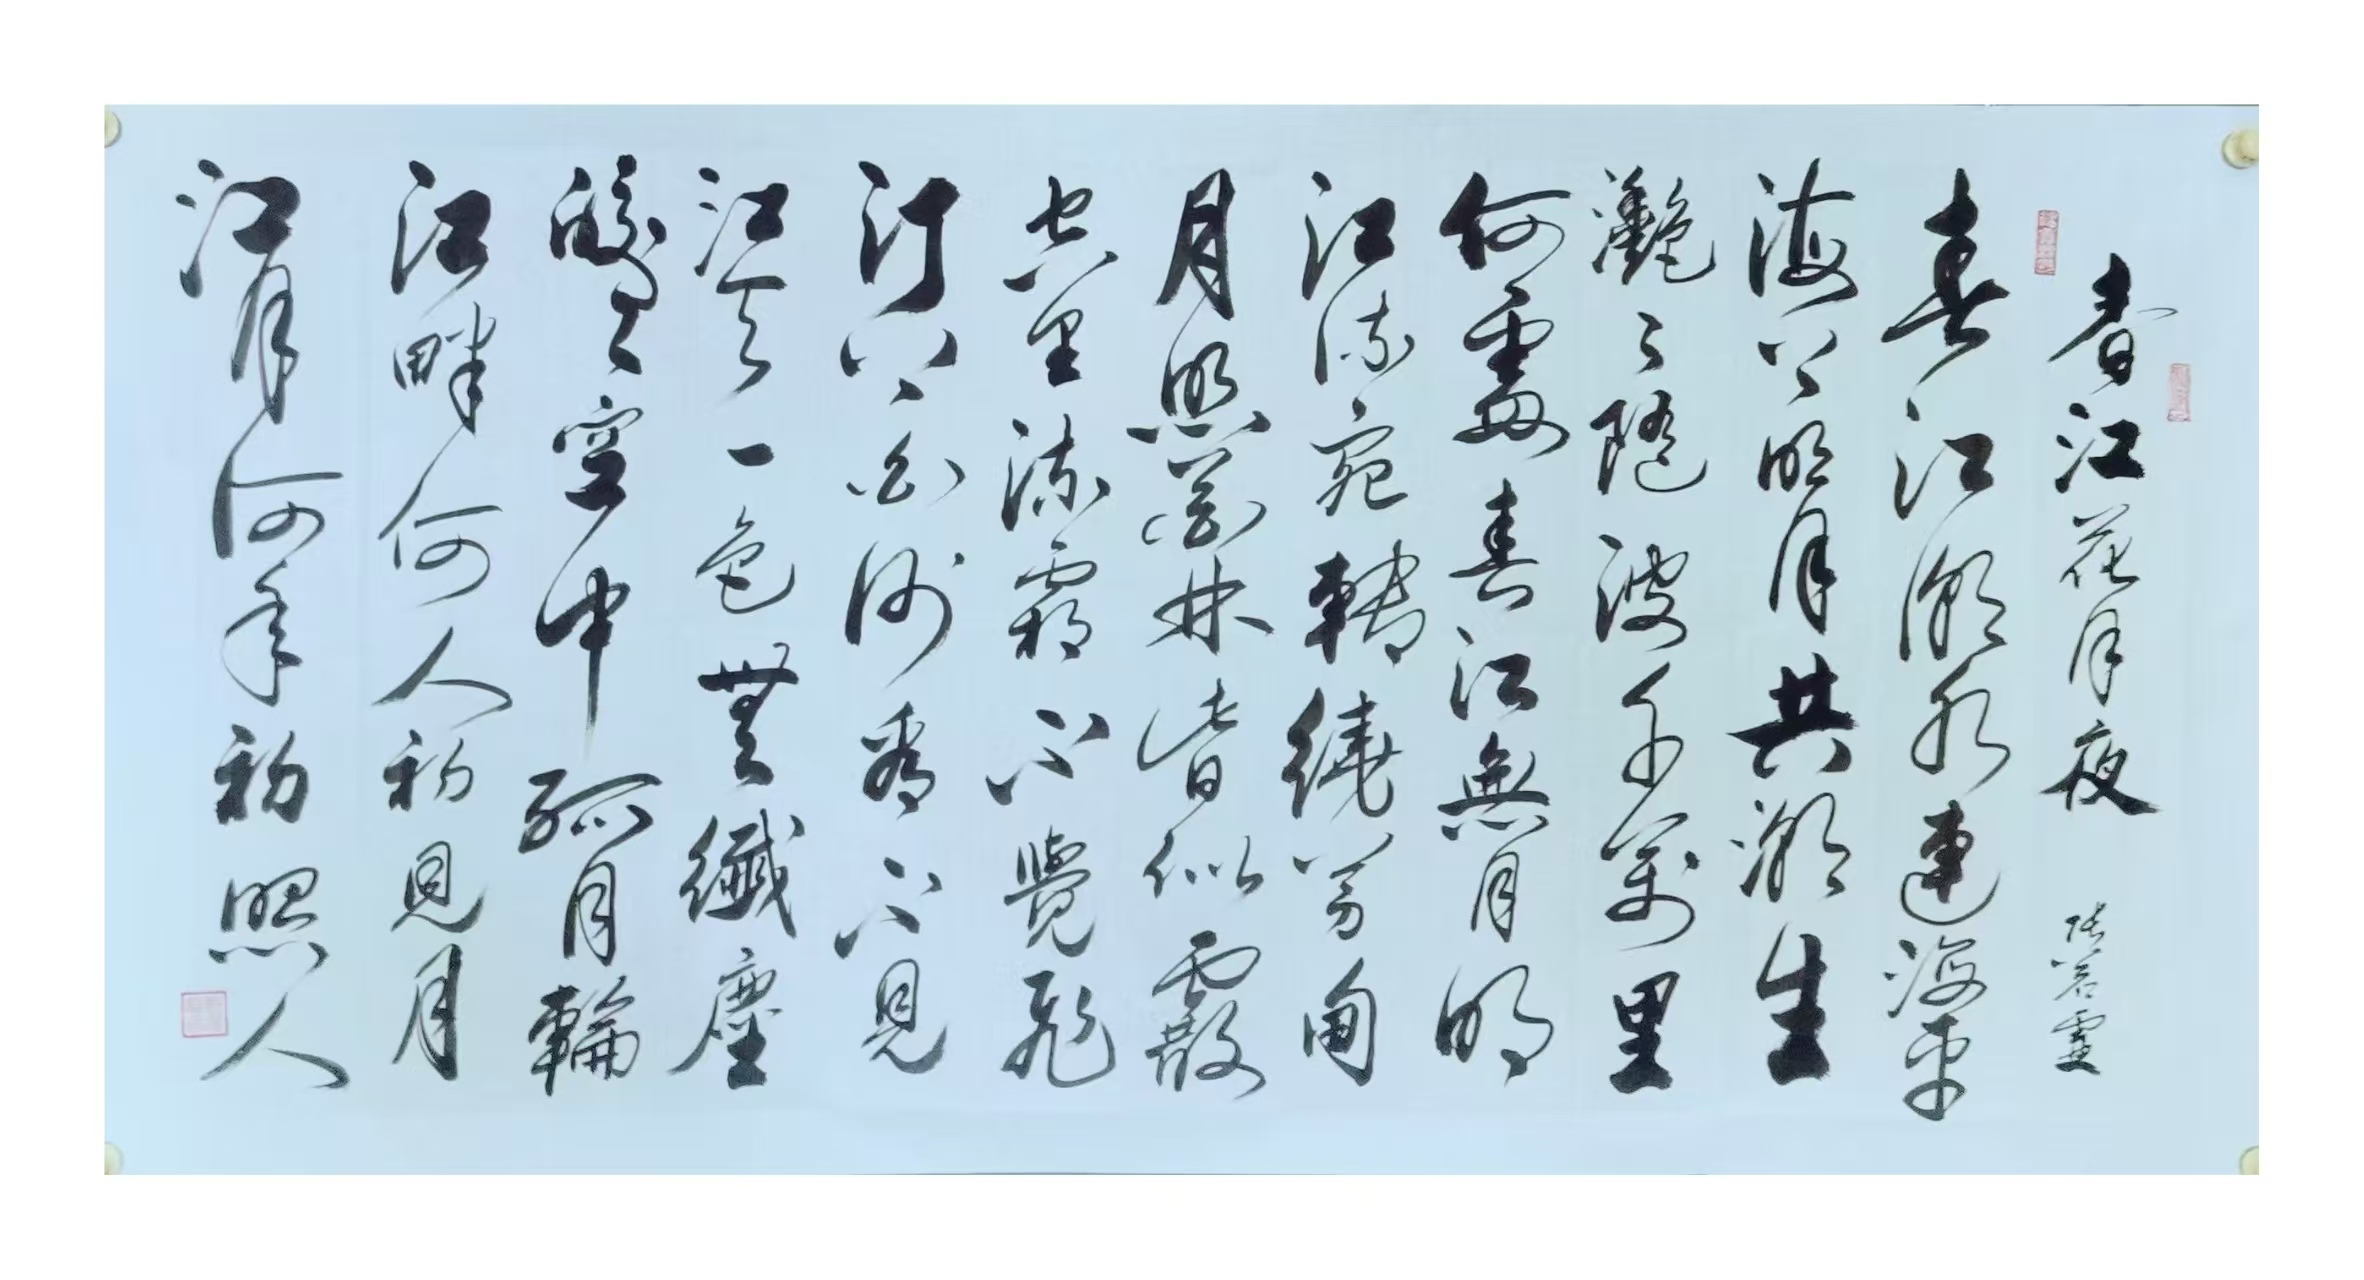 春江花月夜 張若虛
春江潮水連海平
海上明月共潮生
灩々隨波千萬里
何處春江無月明
江流宛轉繞芳甸
月照花林皆似霰
空里流霜不覺飛
汀上白沙看不見
江天一色無纖塵
皎々空中孤月輪
江畔何人初見月
江月何年初照人